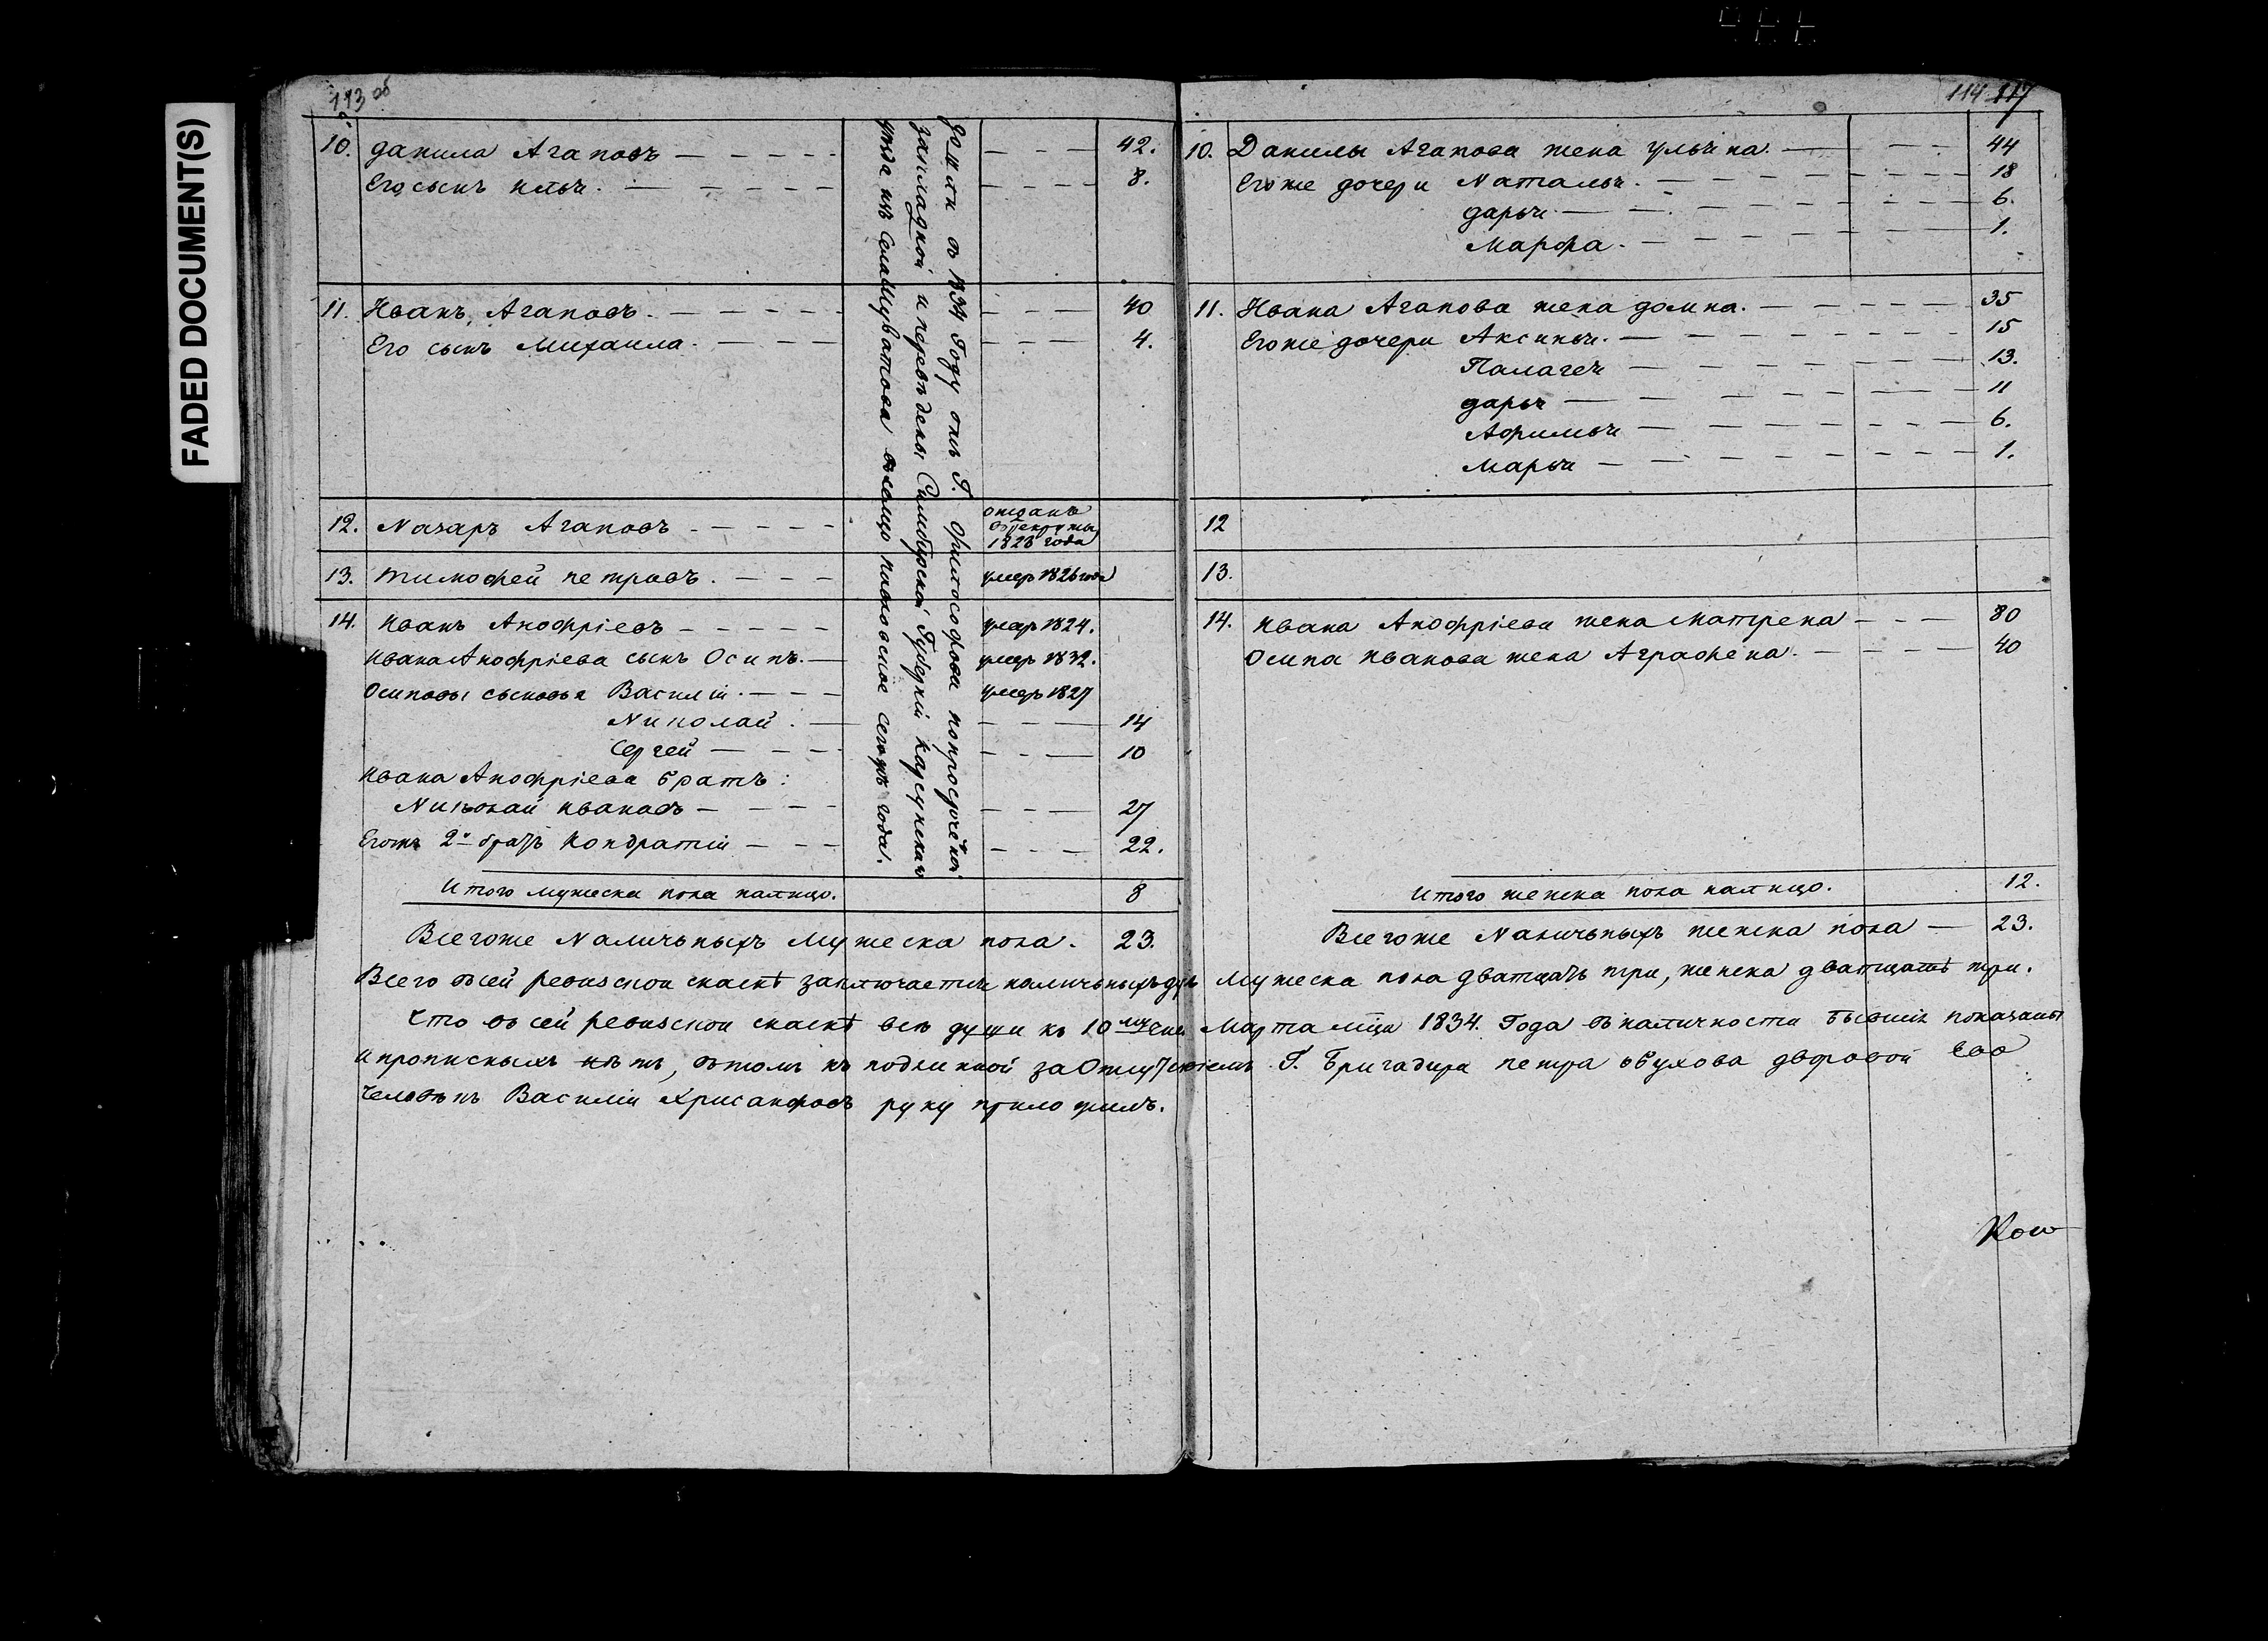 FADED DOCUMENT(S)
113 об
10. данила Агаповъ — 42.
Его сынъ илья. — 8.
11. Иванъ Агаповъ. — 40
Его сынъ Михаила. — 4.
12. Назаръ Агаповъ — отданъ в рекруты 1828 года
13. тимофей петровъ. — умеръ 1826 года
14. иванъ Анофріевъ — умеръ 1824.
ивана Анофріева сынъ Осипъ. — умеръ 1832.
Осиповы сыновья Василій. — умеръ 1827
Николай. — 14
Сергей — 10
ивана Анофріева братъ:
Николай ивановъ — 27
Егоже 2й братъ Кондратій — 22.
Итого мужеска пола налицо. 8
Всегоже Наличьныхъ Мужеска пола. 23.
дошли в 1834 Году отъ Г. Философова попросроченой
закладной и переведены Симбирской Губерніи карсунскаго
уезда изъ села в сельцо павловское сего года.
114 117
10. Данилы Агапова жена ульяна. — 44
Егоже дочери Наталья. — 18
дарья. — 6.
Марфа. — 1.
11. Ивана Агапова жена домна. — 35
Егоже дочери Аксинья. — 15
Палагея — 13.
дарья — 11
Афимья — 6.
Марья — 1.
12
13.
14. ивана Анофріева жена Матрена — 80
Осипа иванова жена Аграфена. — 40
Итого женска пола налицо. 12.
Всегоже Наличьныхъ женска пола — 23.
Всего всей ревиской скаскѣ заключается наличьныхъ душъ Мужеска пола дватцать три, женска дватцать три.
Что в сей ревиской скаскѣ все души къ 10 Марта мца 1834. Года в наличности бывшія показаны
и прописныхъ нѣтъ, втомъ къ подлинной за Отлучениемъ Г. Бригадира петра обухова дворовой ево
человекъ Василій Хрисанфовъ руку приложилъ.